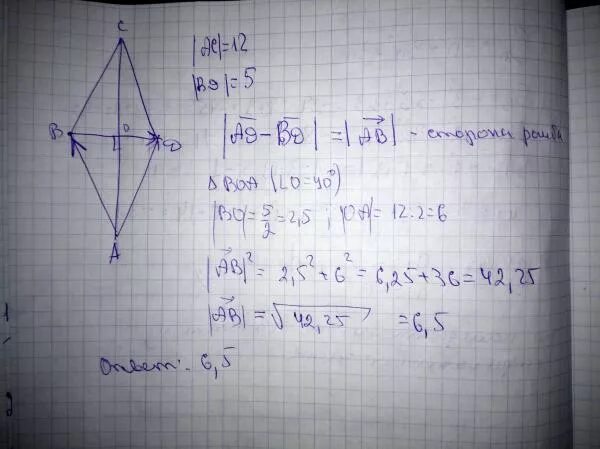 C
|AC|=12
|BD|=5
B
O
D
|AD-BD|=|AB| - стороны ромба
Δ BOA (∠O=90°)
|BO|=5/2=2,5 ; |OA|=12:2=6
A
|AB|²= 2,5²+6²=6,25+36=42,25
|AB|=√42,25 =6,5
Ответ: 6,5
1
2